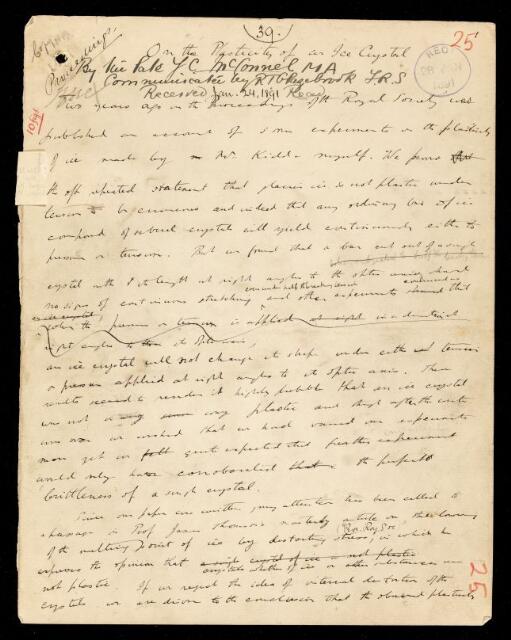 39.
25
On the Plasticity of an Ice Crystal
Proceedings
By the late J C McConnel M A
Communicated by R T Glazebrook F.R.S
Received Jan. 24. 1891 Read
REC
1891
Two years ago in the Proceedings of the Royal Society was
published an account of some experiments on the plasticity
of ice made by Mr. Kidd & myself. We found
the oft repeated statement that glacier ice is not plastic under
tension to be erroneous and indeed that any ordinary bar of ice
composed of several crystals will yield continuously either to
pressure or tension. But we found that a bar cut out of a single
crystal with its length at right angles to the optic axis showed
no signs of continuous stretching and other experiments showed that
when the pressure or tension is applied in a direction at
right angles to
an ice crystal will not change its shape under either tension
or pressure applied at right angles to its optic axis. These
results seemed to render it highly probable that an ice crystal
was not in any way plastic and though after the winter
was over we wished that we had varied our experiments
more yet we quite expected that further experiment
would only have corroborated the perfect
brittleness of a single crystal.
Since our paper was written my attention has been called to
a passage in Prof James Thomson's masterly article on the lowering
Proc. Roy. Soc
of the melting point of ice by distorting stress, in which he
expresses the opinion that
crystals whether of ice or other substances are
not plastic. If we reject the idea of internal distortion of the
crystals we are driven to the conclusion that the observed plasticity
25